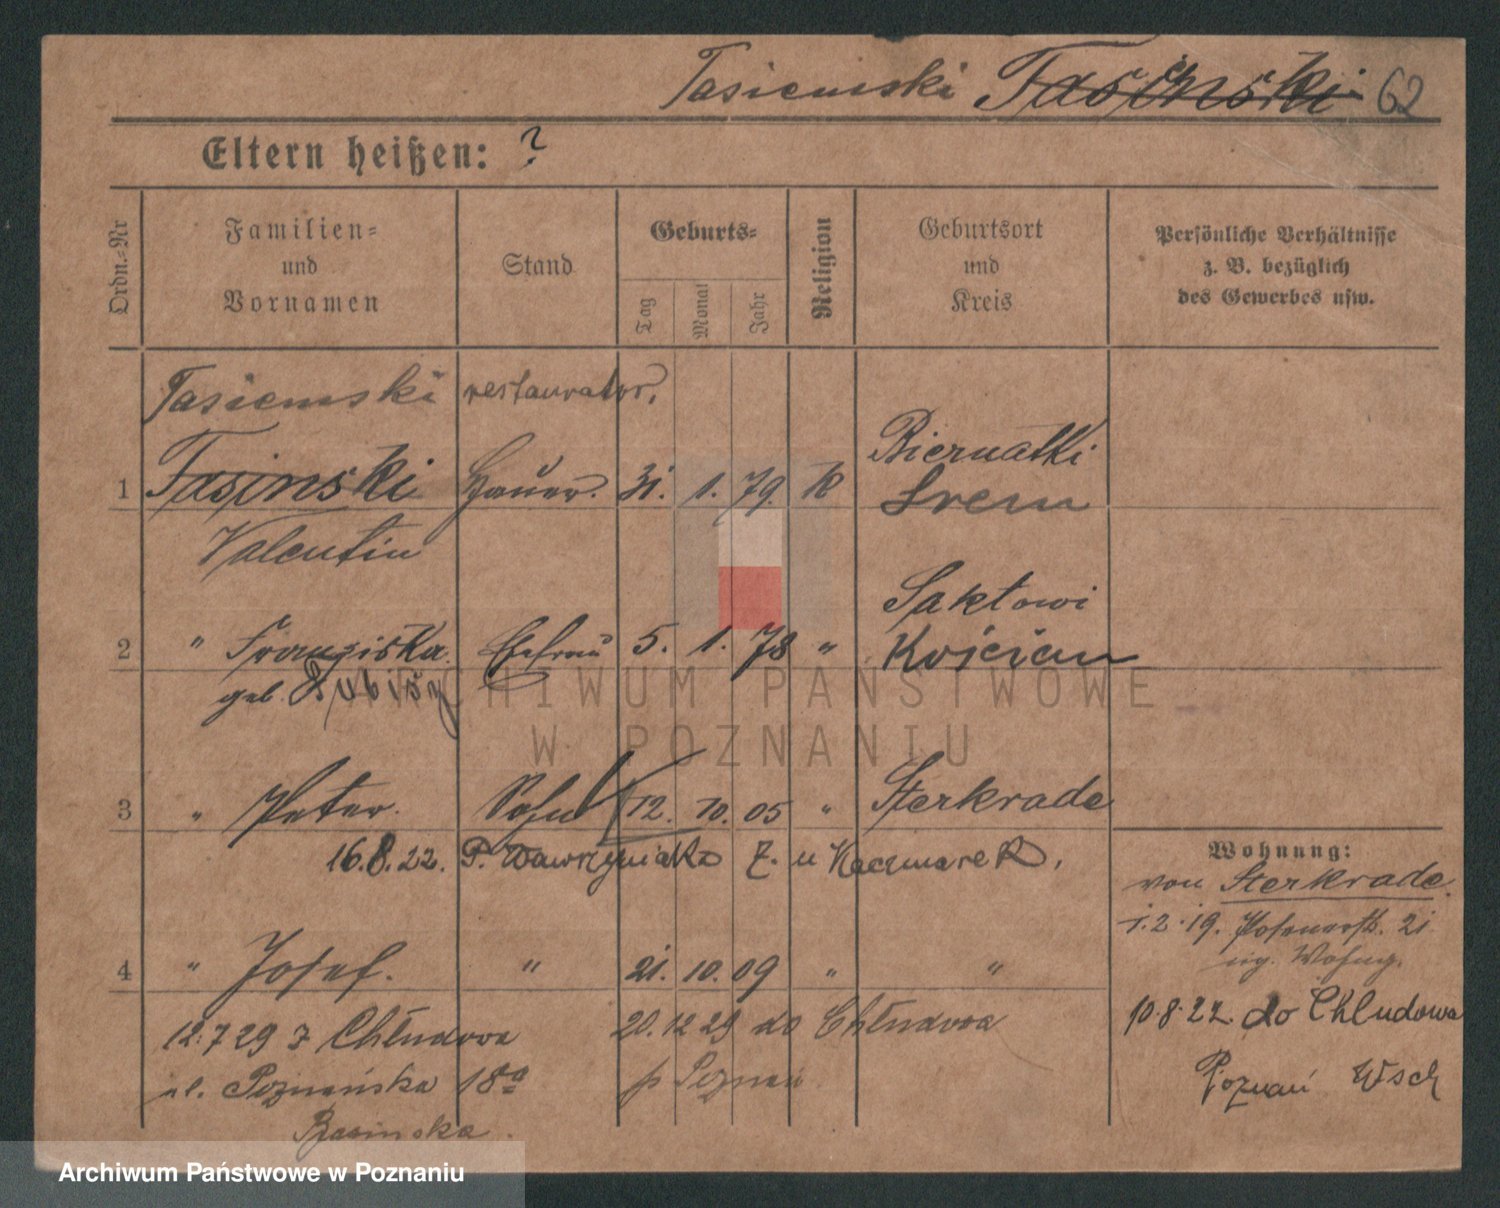 Tasiemski Tasinski 62
Eltern heißen: ?
Ordn.-Nr
Familien- und Vornamen
Stand
Geburts-
Tag
Monat
Jahr
Religion
Geburtsort und Kreis
Persönliche Verhältnisse z. B. bezüglich des Gewerbes usw.
Tasiemski restaurator.
1 Tasinski Hauer. 31. 1. 79. K Biernatki Srem
Valentin
2 " Franziska Ehefrau 5. 1. 78 " Kościan
geb.
3 " Peter. Sohn 12. 10. 05 " Sterkrade
16.8.22. P. Wawrzyniaka 7. u Kaczmarek.
Wohnung:
von Sterkrade
1.2.19. Posenerstr. 21
4 " Josef. " 21. 10. 09 " "
12.7 29 z Chludowa 20. 12 29 do Chludowa
10.8.22. do Chludowa
ul. Poznańska 18a p Poznań
Poznań Wsch